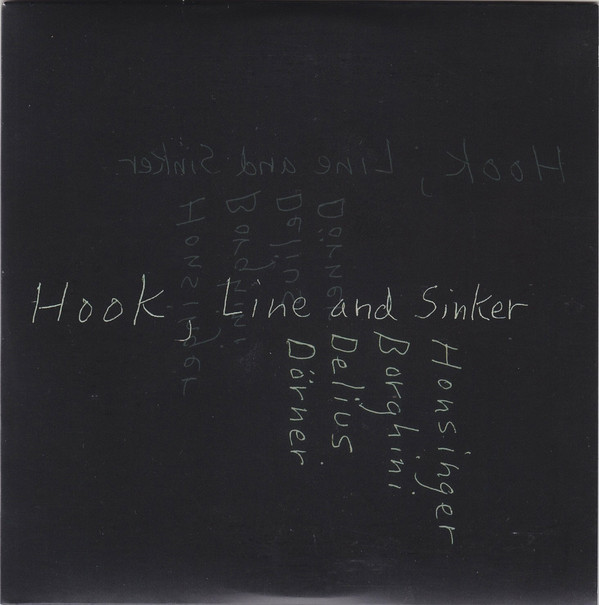 Hook, Line and Sinker
Honsinger
Borghini
Delius
Dörner
Hook, Line and Sinker
Dörner
Delius
Borghini
Honsinger